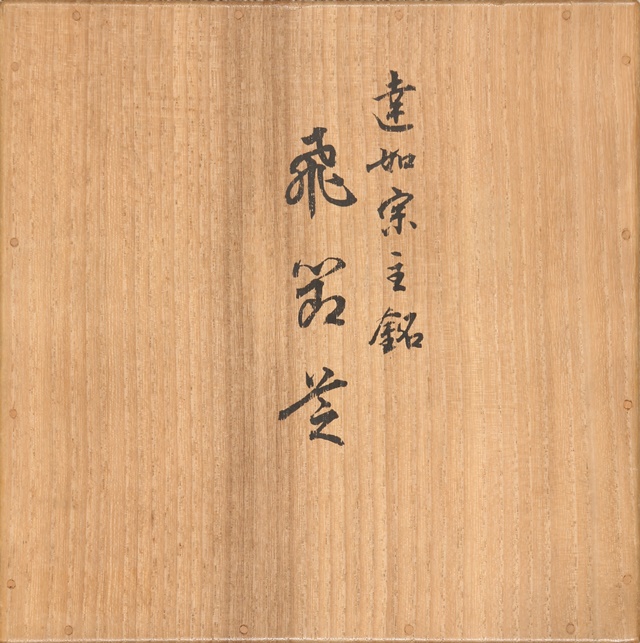 達如宗主銘
飛節芝